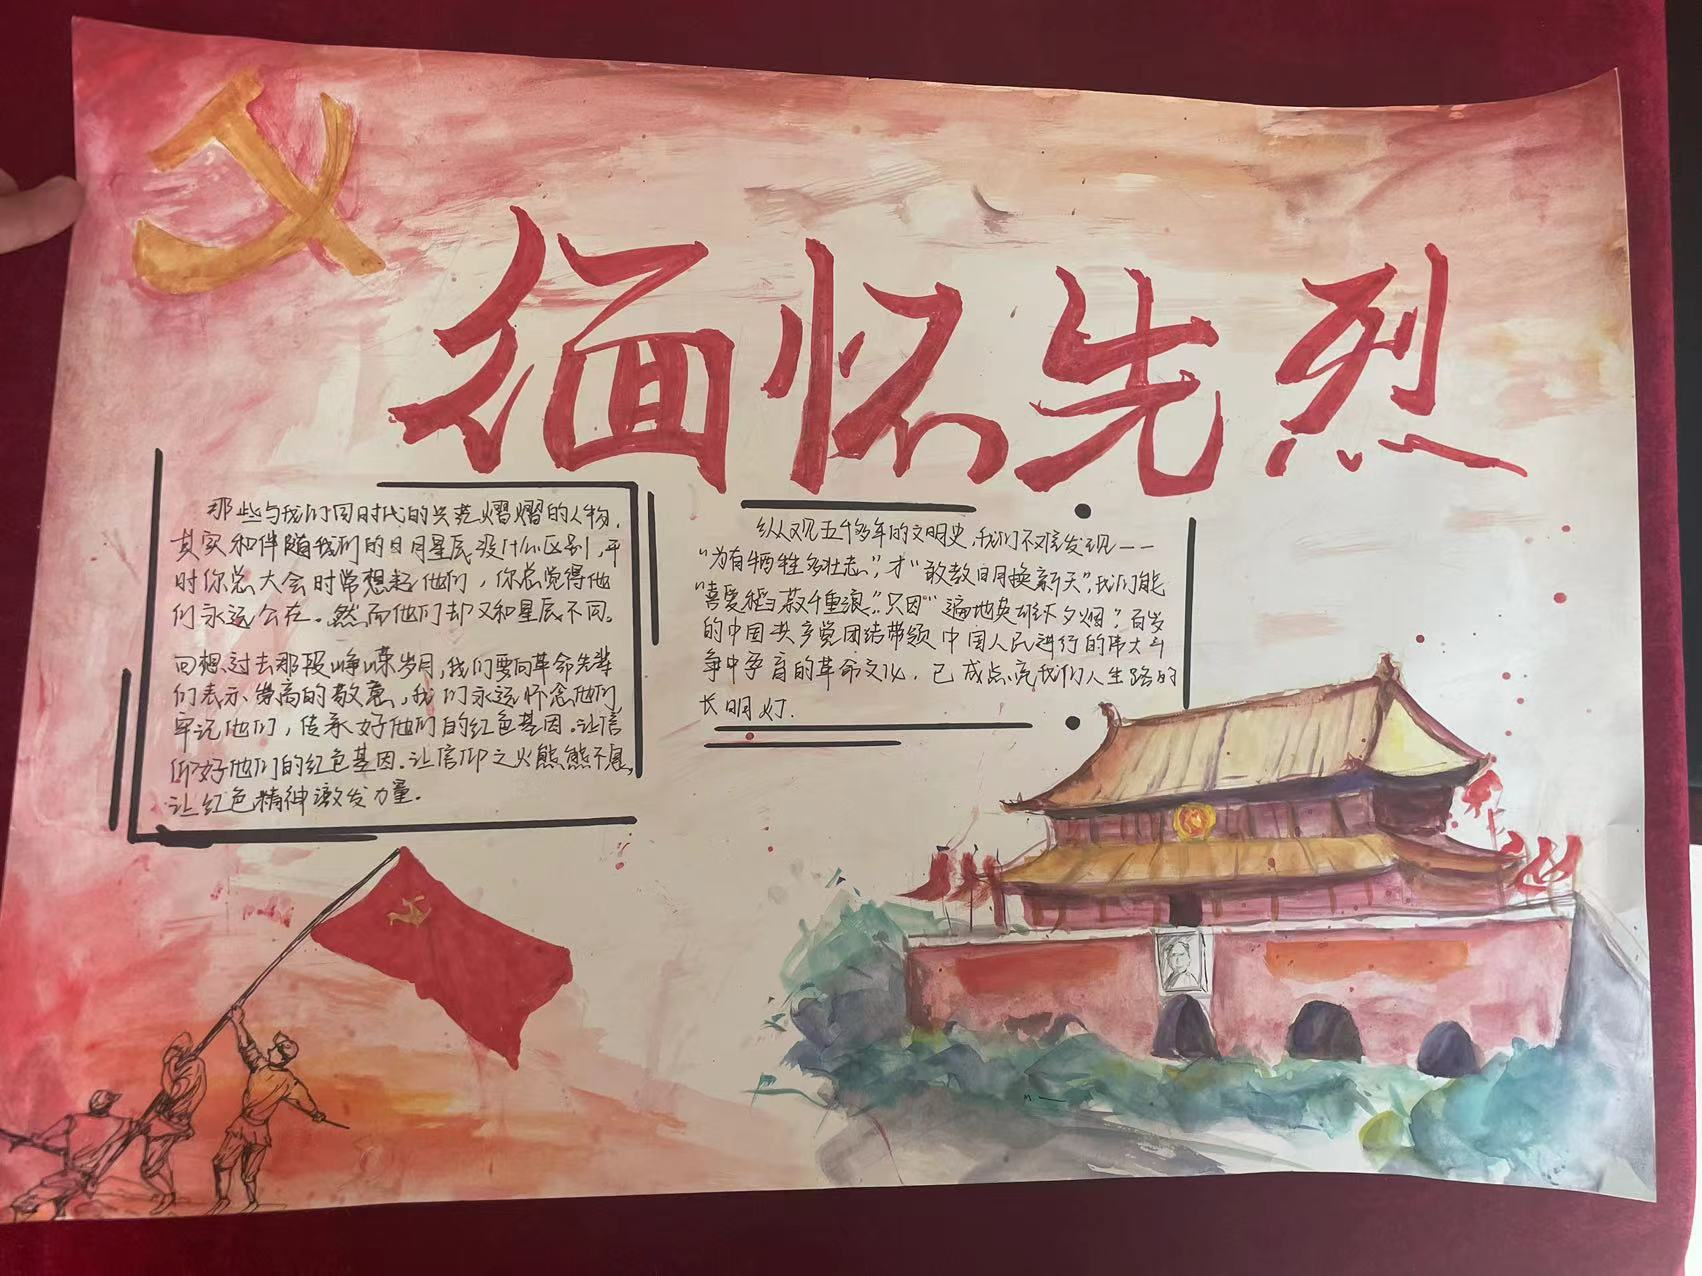 缅怀先烈
那些与我们同时代的光芒熠熠的人物,
其实和伴随我们的日月星辰没什么区别,平
时你总大会时常想起他们,你总觉得他
们永远会在。然而他们却又和星辰不同。
回想过去那段峥嵘岁月,我们要向革命先辈
们表示崇高的敬意,我们永远怀念他们
牢记他们,传承好他们的红色基因。让信
仰好他们的红色基因.让信仰之火熊熊不息,
让红色精神激发力量。
纵观五千多年的文明史,我们不难发现——
“为有牺牲多壮志”,才“敢教日月换新天”,我们能
“喜看稻菽千重浪”.只因“遍地英雄下夕烟”百岁
的中国共产党团结带领中国人民进行的伟大斗
争中孕育的革命文化,已成点亮我们人生路的
长明灯.